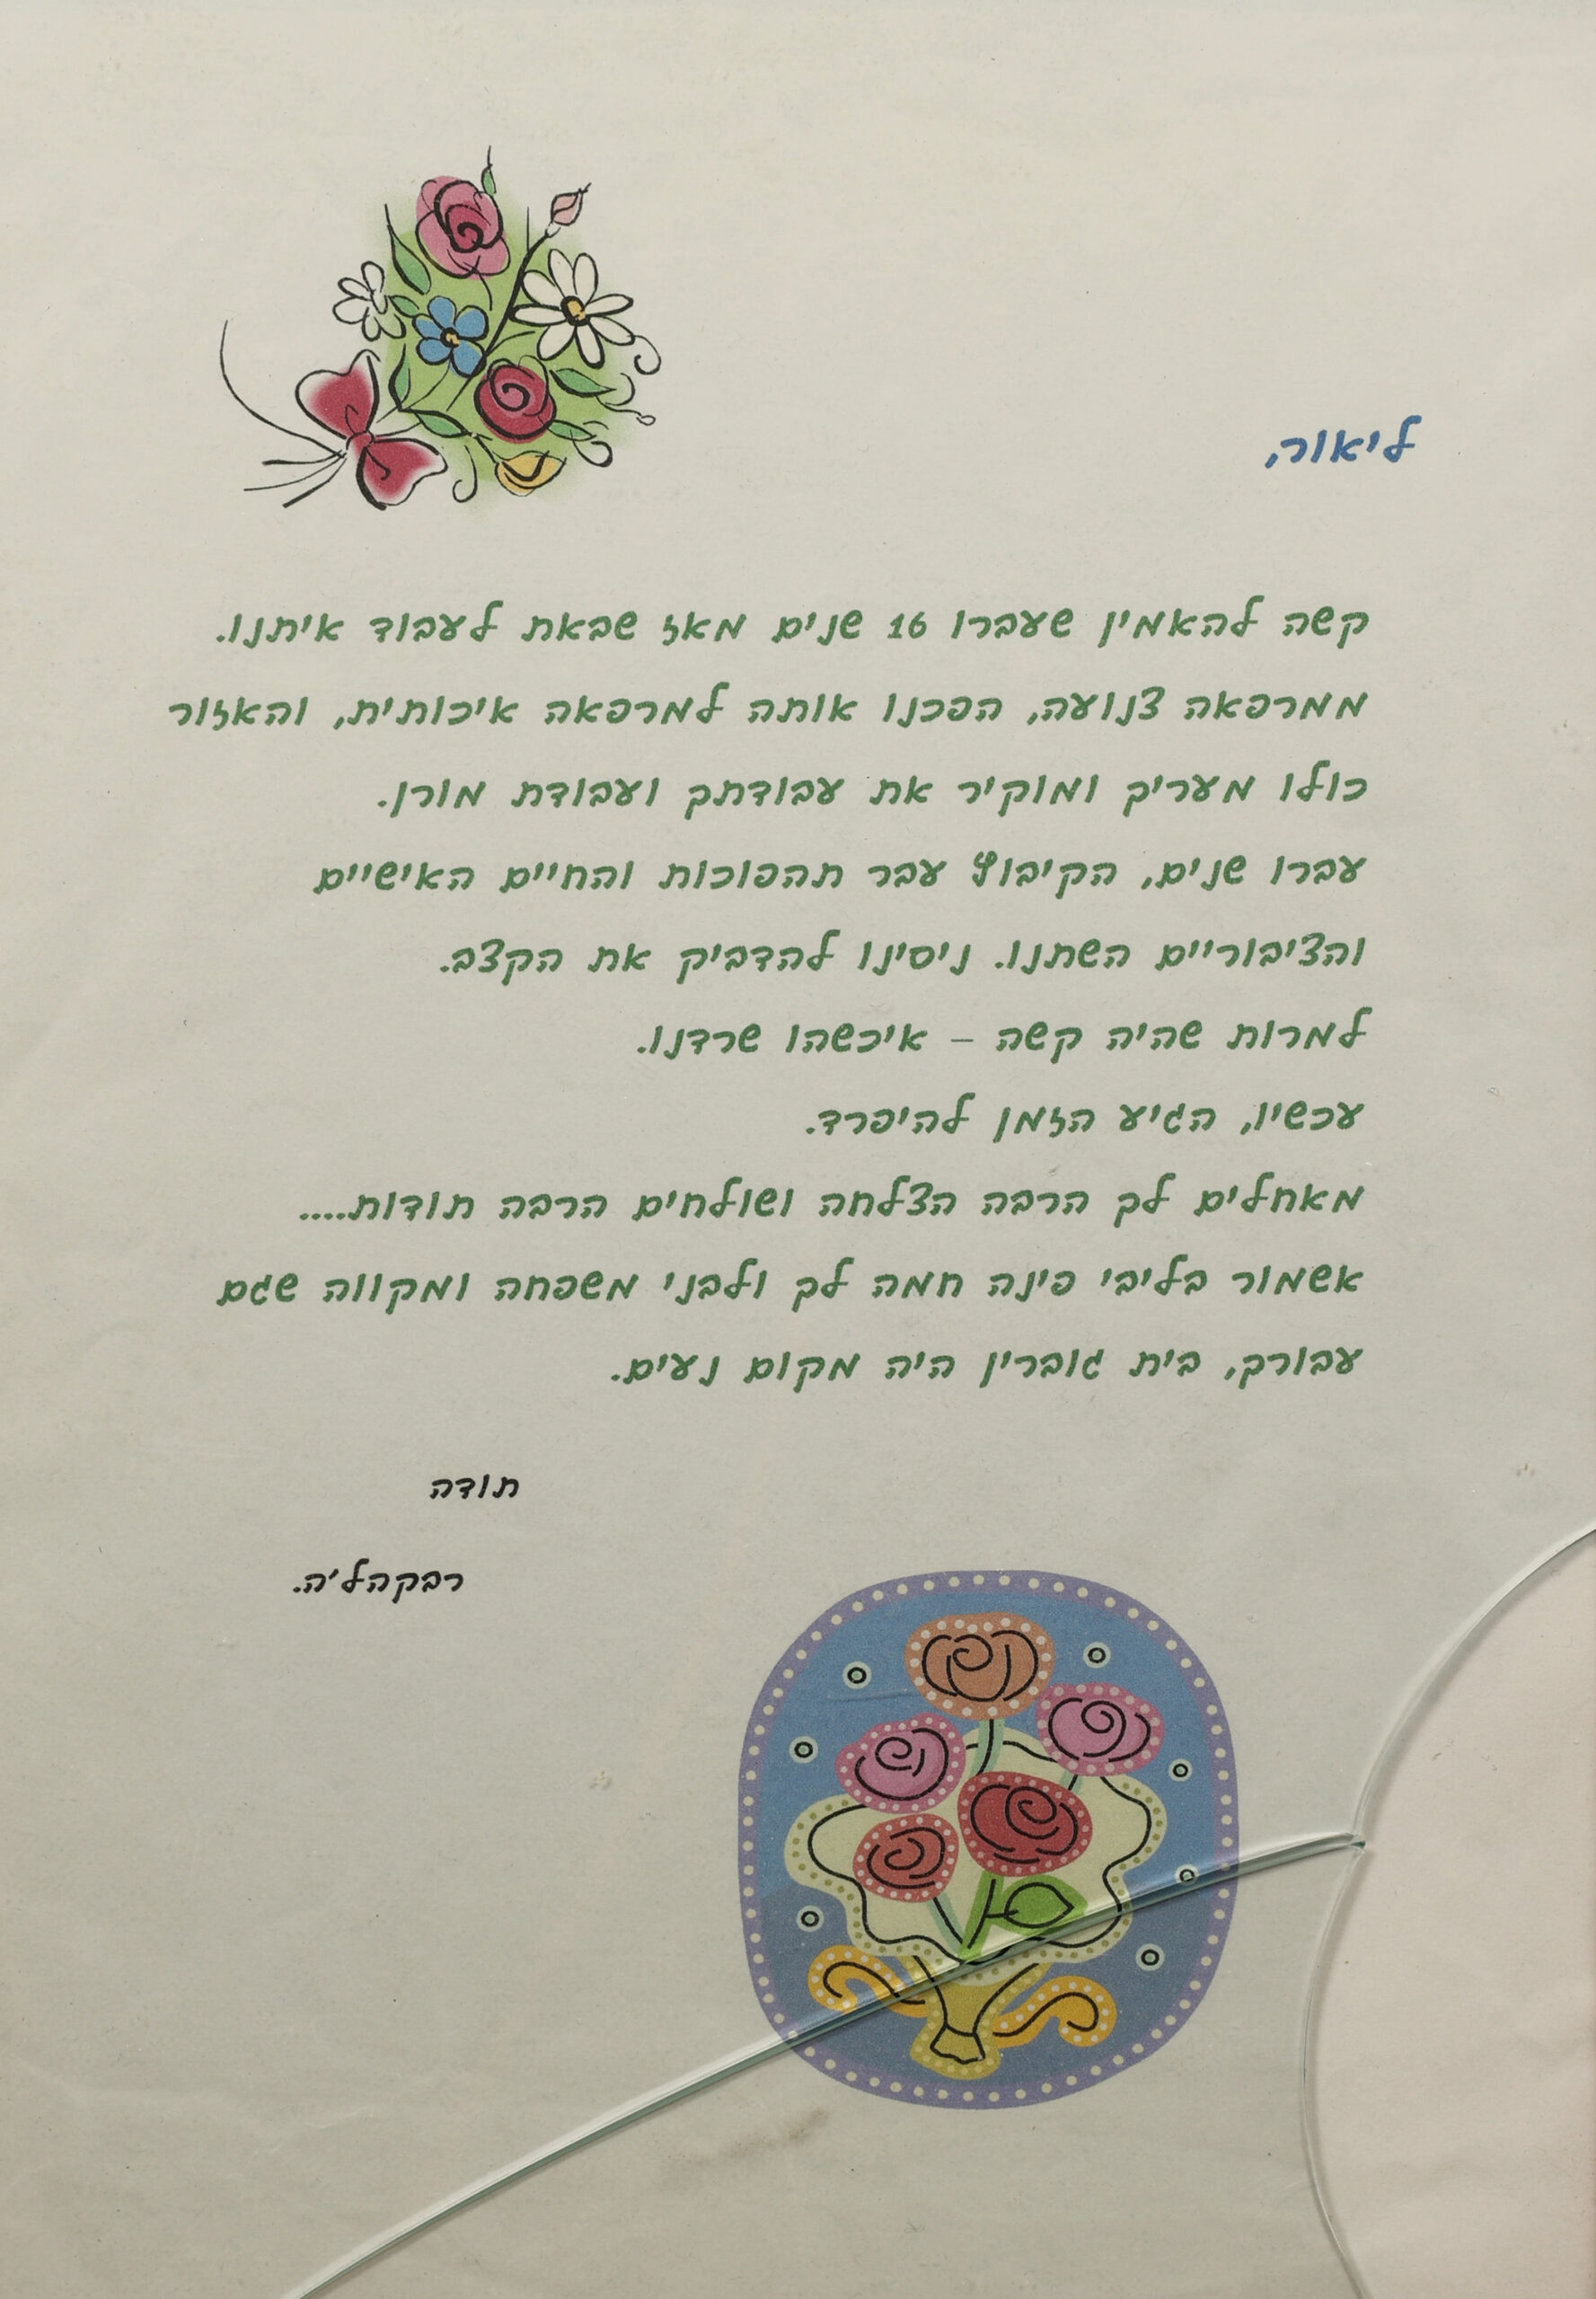 ליאור,
קשה להאמין שעברו 16 שנים מאז שבאת לעבוד איתנו.
ממרפאה צנועה, הפכנו אותה למרפאה איכותית, והאזור
כולו מעריך ומוקיר את עבודתך ועבודת מורן.
עברו שנים, הקיבוץ עבר תהפוכות והחיים האישיים
והציבוריים השתנו. ניסינו להדביק את הקצב.
למרות שהיה קשה – איכשהו שרדנו.
עכשיו, הגיע הזמן להיפרד.
מאחלים לך הרבה הצלחה ושולחים הרבה תודות....
אשמור בליבי פינה חמה לך ולבני משפחה ומקווה שגם
עבורך, בית גוברין היה מקום נעים.
תודה
רבקהל'ה.